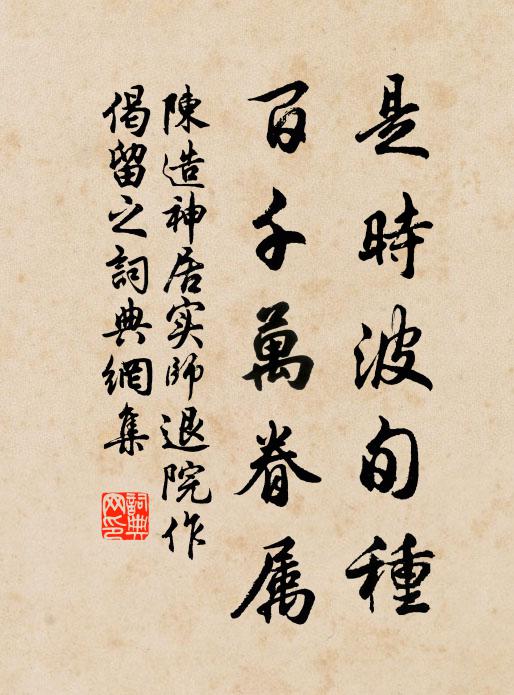 是時波旬種
百千萬眷属
陳造神居实師退院作
偈留之詞典網集
詞典网印